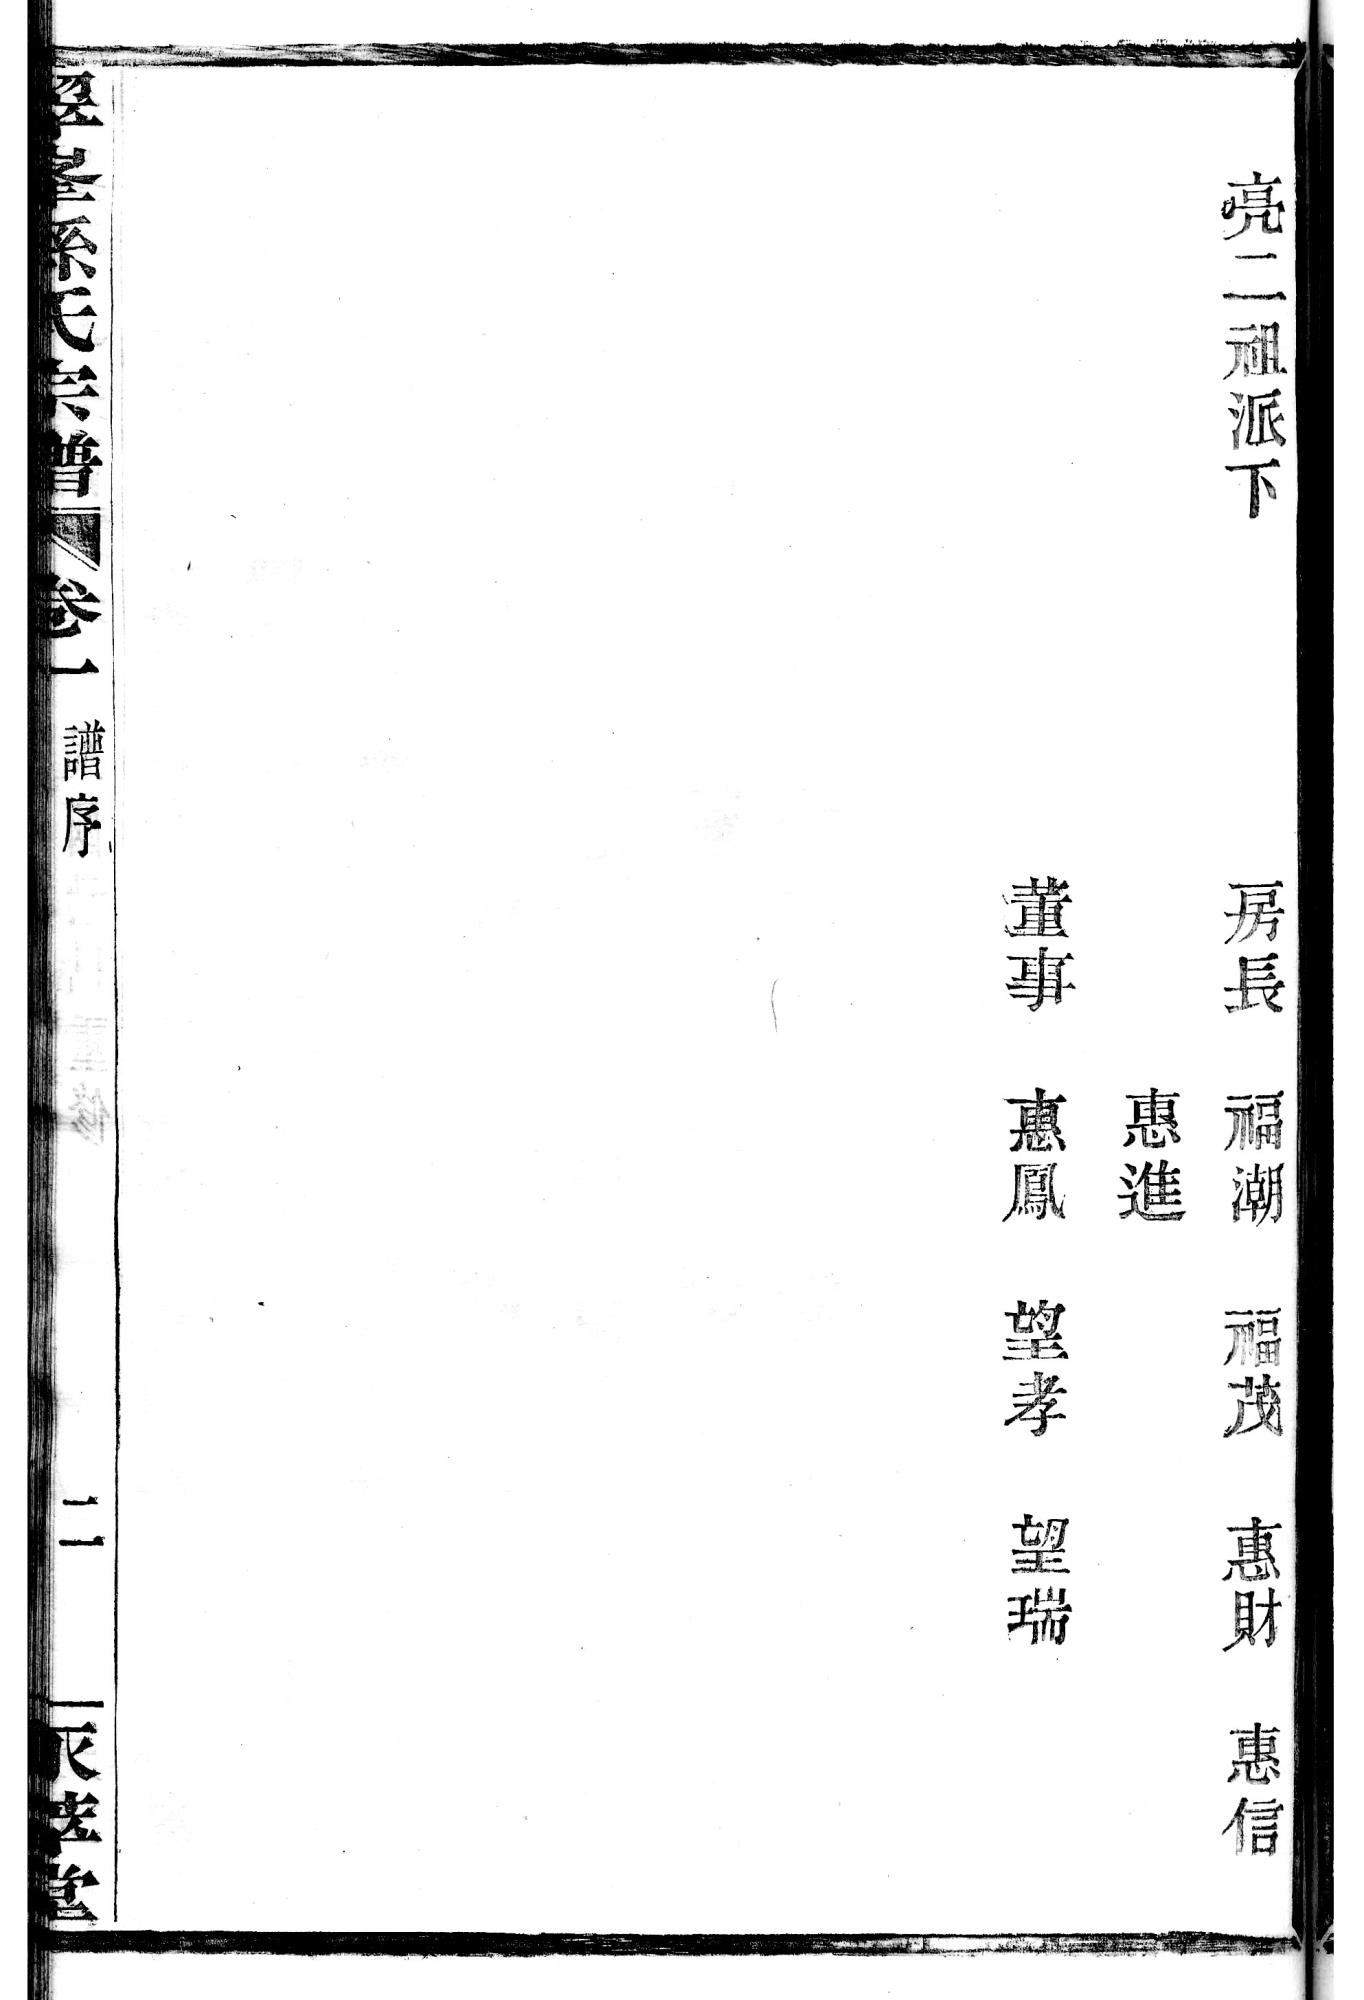 亮二祖派下　房長　福潮　福茂　惠財　惠信
惠進
董事　惠鳳　望孝　望瑞
孫氏宗譜　卷一　譜序　二　永睦堂